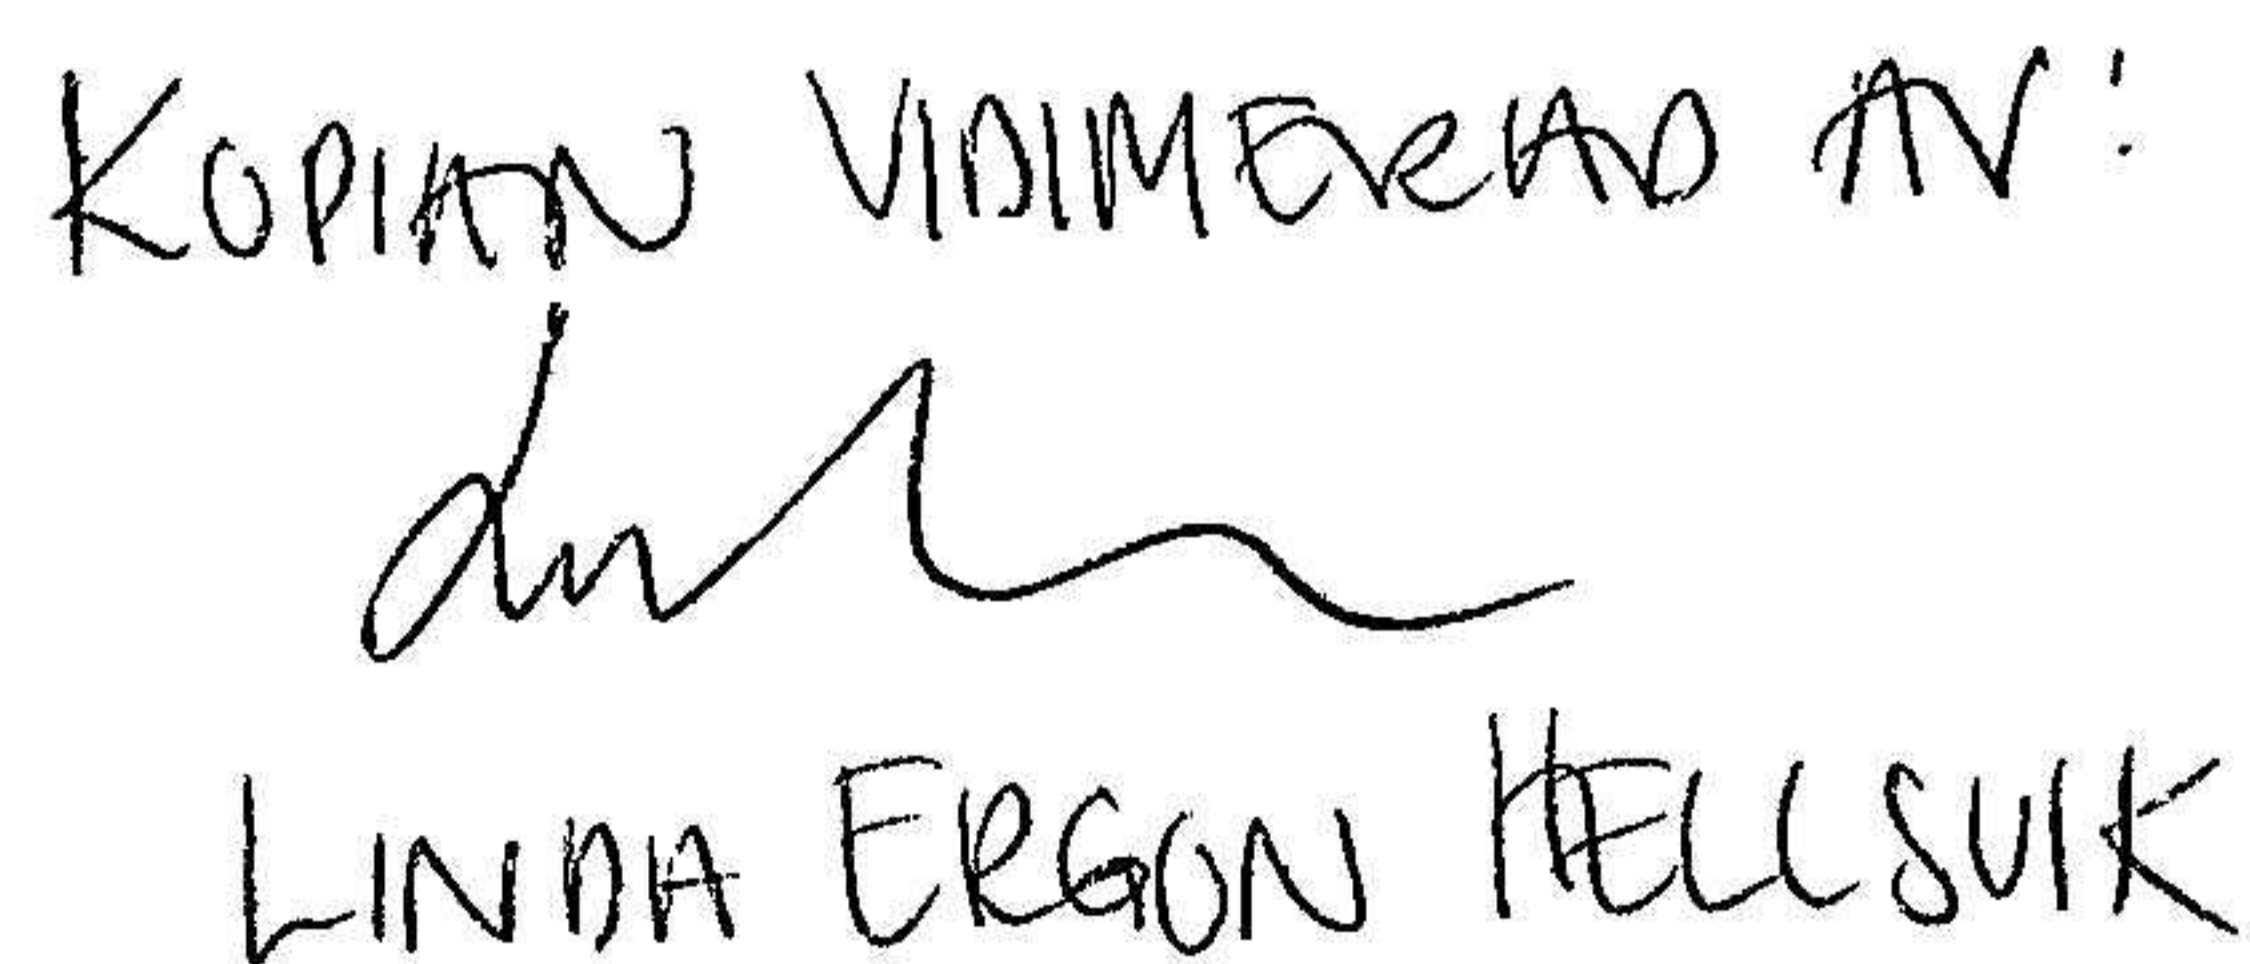 KOPIAN VIDIMERAD AV:
LINDA ERGON HELLSVIK